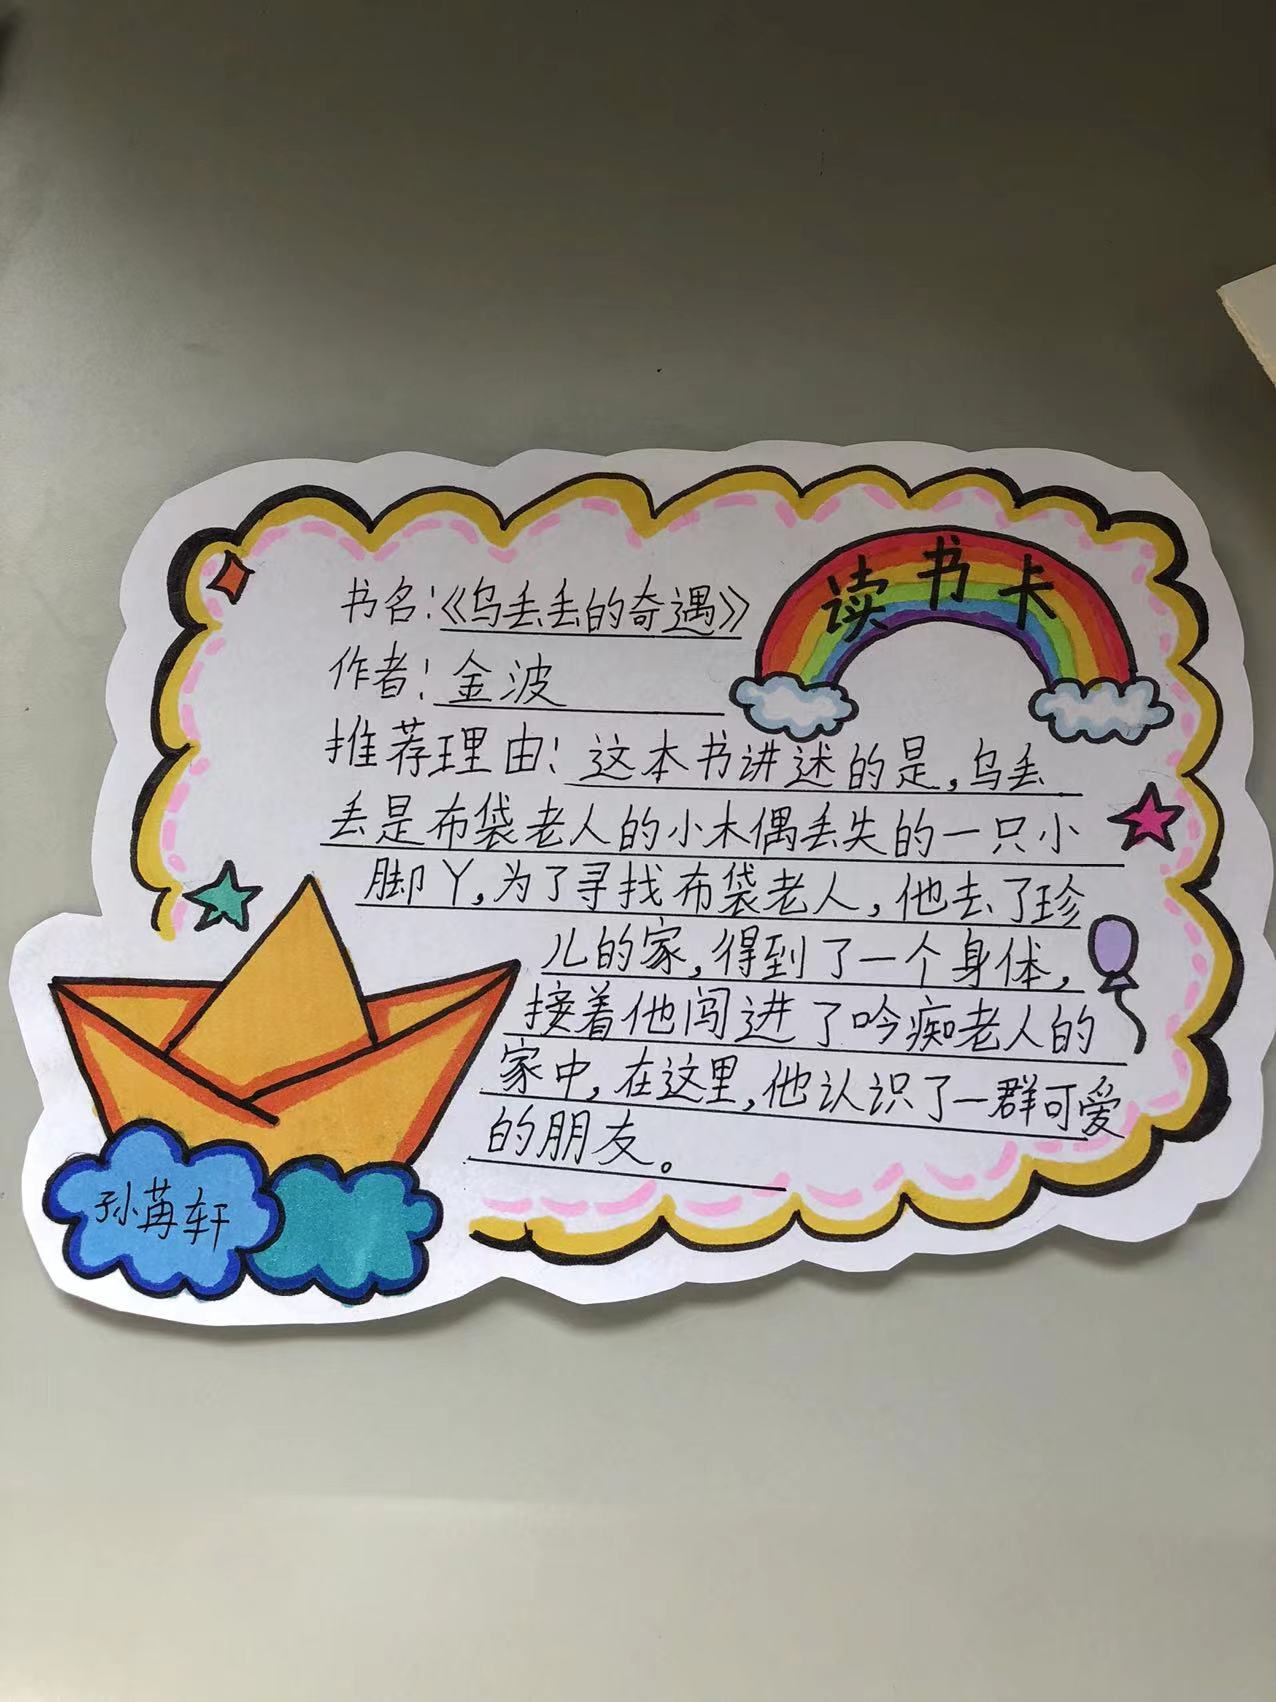 读书卡
书名:《乌丢丢的奇遇》
作者:金波
推荐理由:这本书讲述的是,乌丢
丢是布袋老人的小木偶丢失的一只小
脚丫,为了寻找布袋老人,他去了珍
儿的家,得到了一个身体,
接着他闯进了吟痴老人的
家中,在这里,他认识了一群可爱
的朋友。
孙苒轩